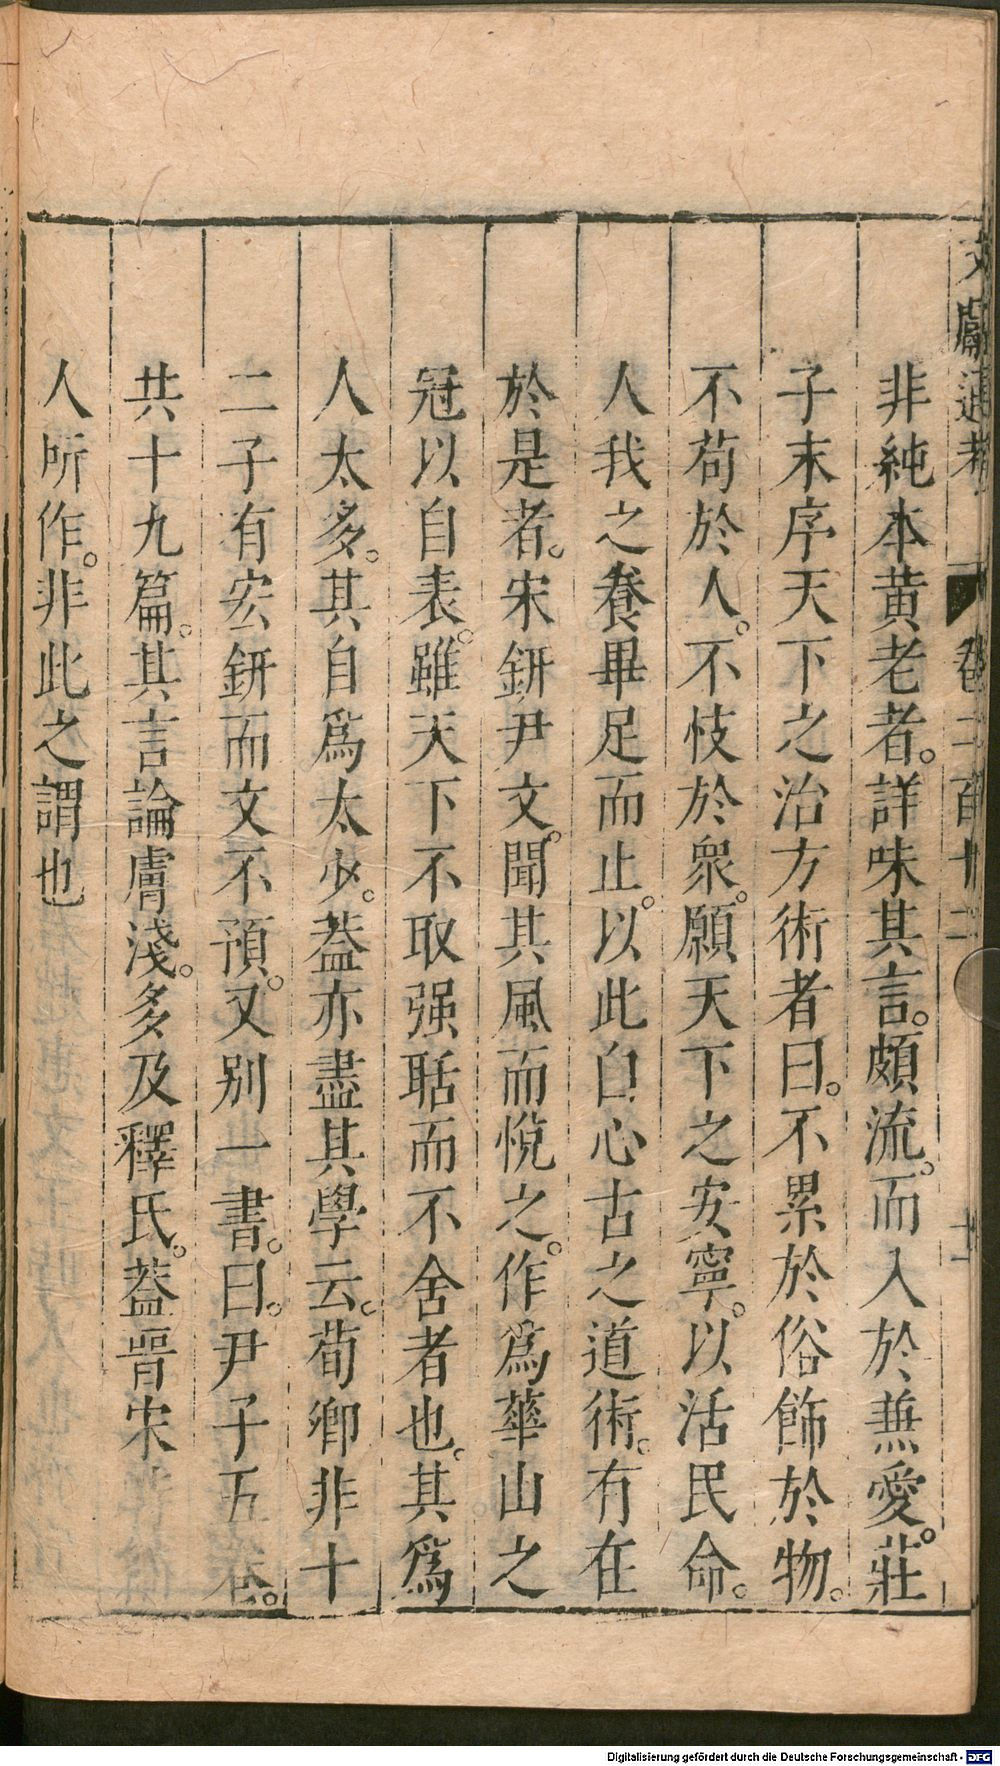 文獻通考 卷二百十二 十一
非純本黄老者。詳味其言。頗流。而入於兼愛。莊
子末序天下之治方術者曰。不累於俗飾於物。
不苟於人。不忮於衆。願天下之安寧。以活民命。
人我之養畢足而止。以此白心古之道術。有在
於是者。宋鈃尹文。聞其風而悅之。作爲華山之
冠以自表。雖天下不取强聒而不舍者也。其爲
人太多。其自爲太少。蓋亦盡其學云。荀卿非十
二子有宏鈃而文不預。又别一書。曰。尹子五卷。
共十九篇。其言論膚淺。多及釋氏。蓋晉宋
人所作。非此之謂也
Digitalisierung gefördert durch die Deutsche Forschungsgemeinschaft - DFG